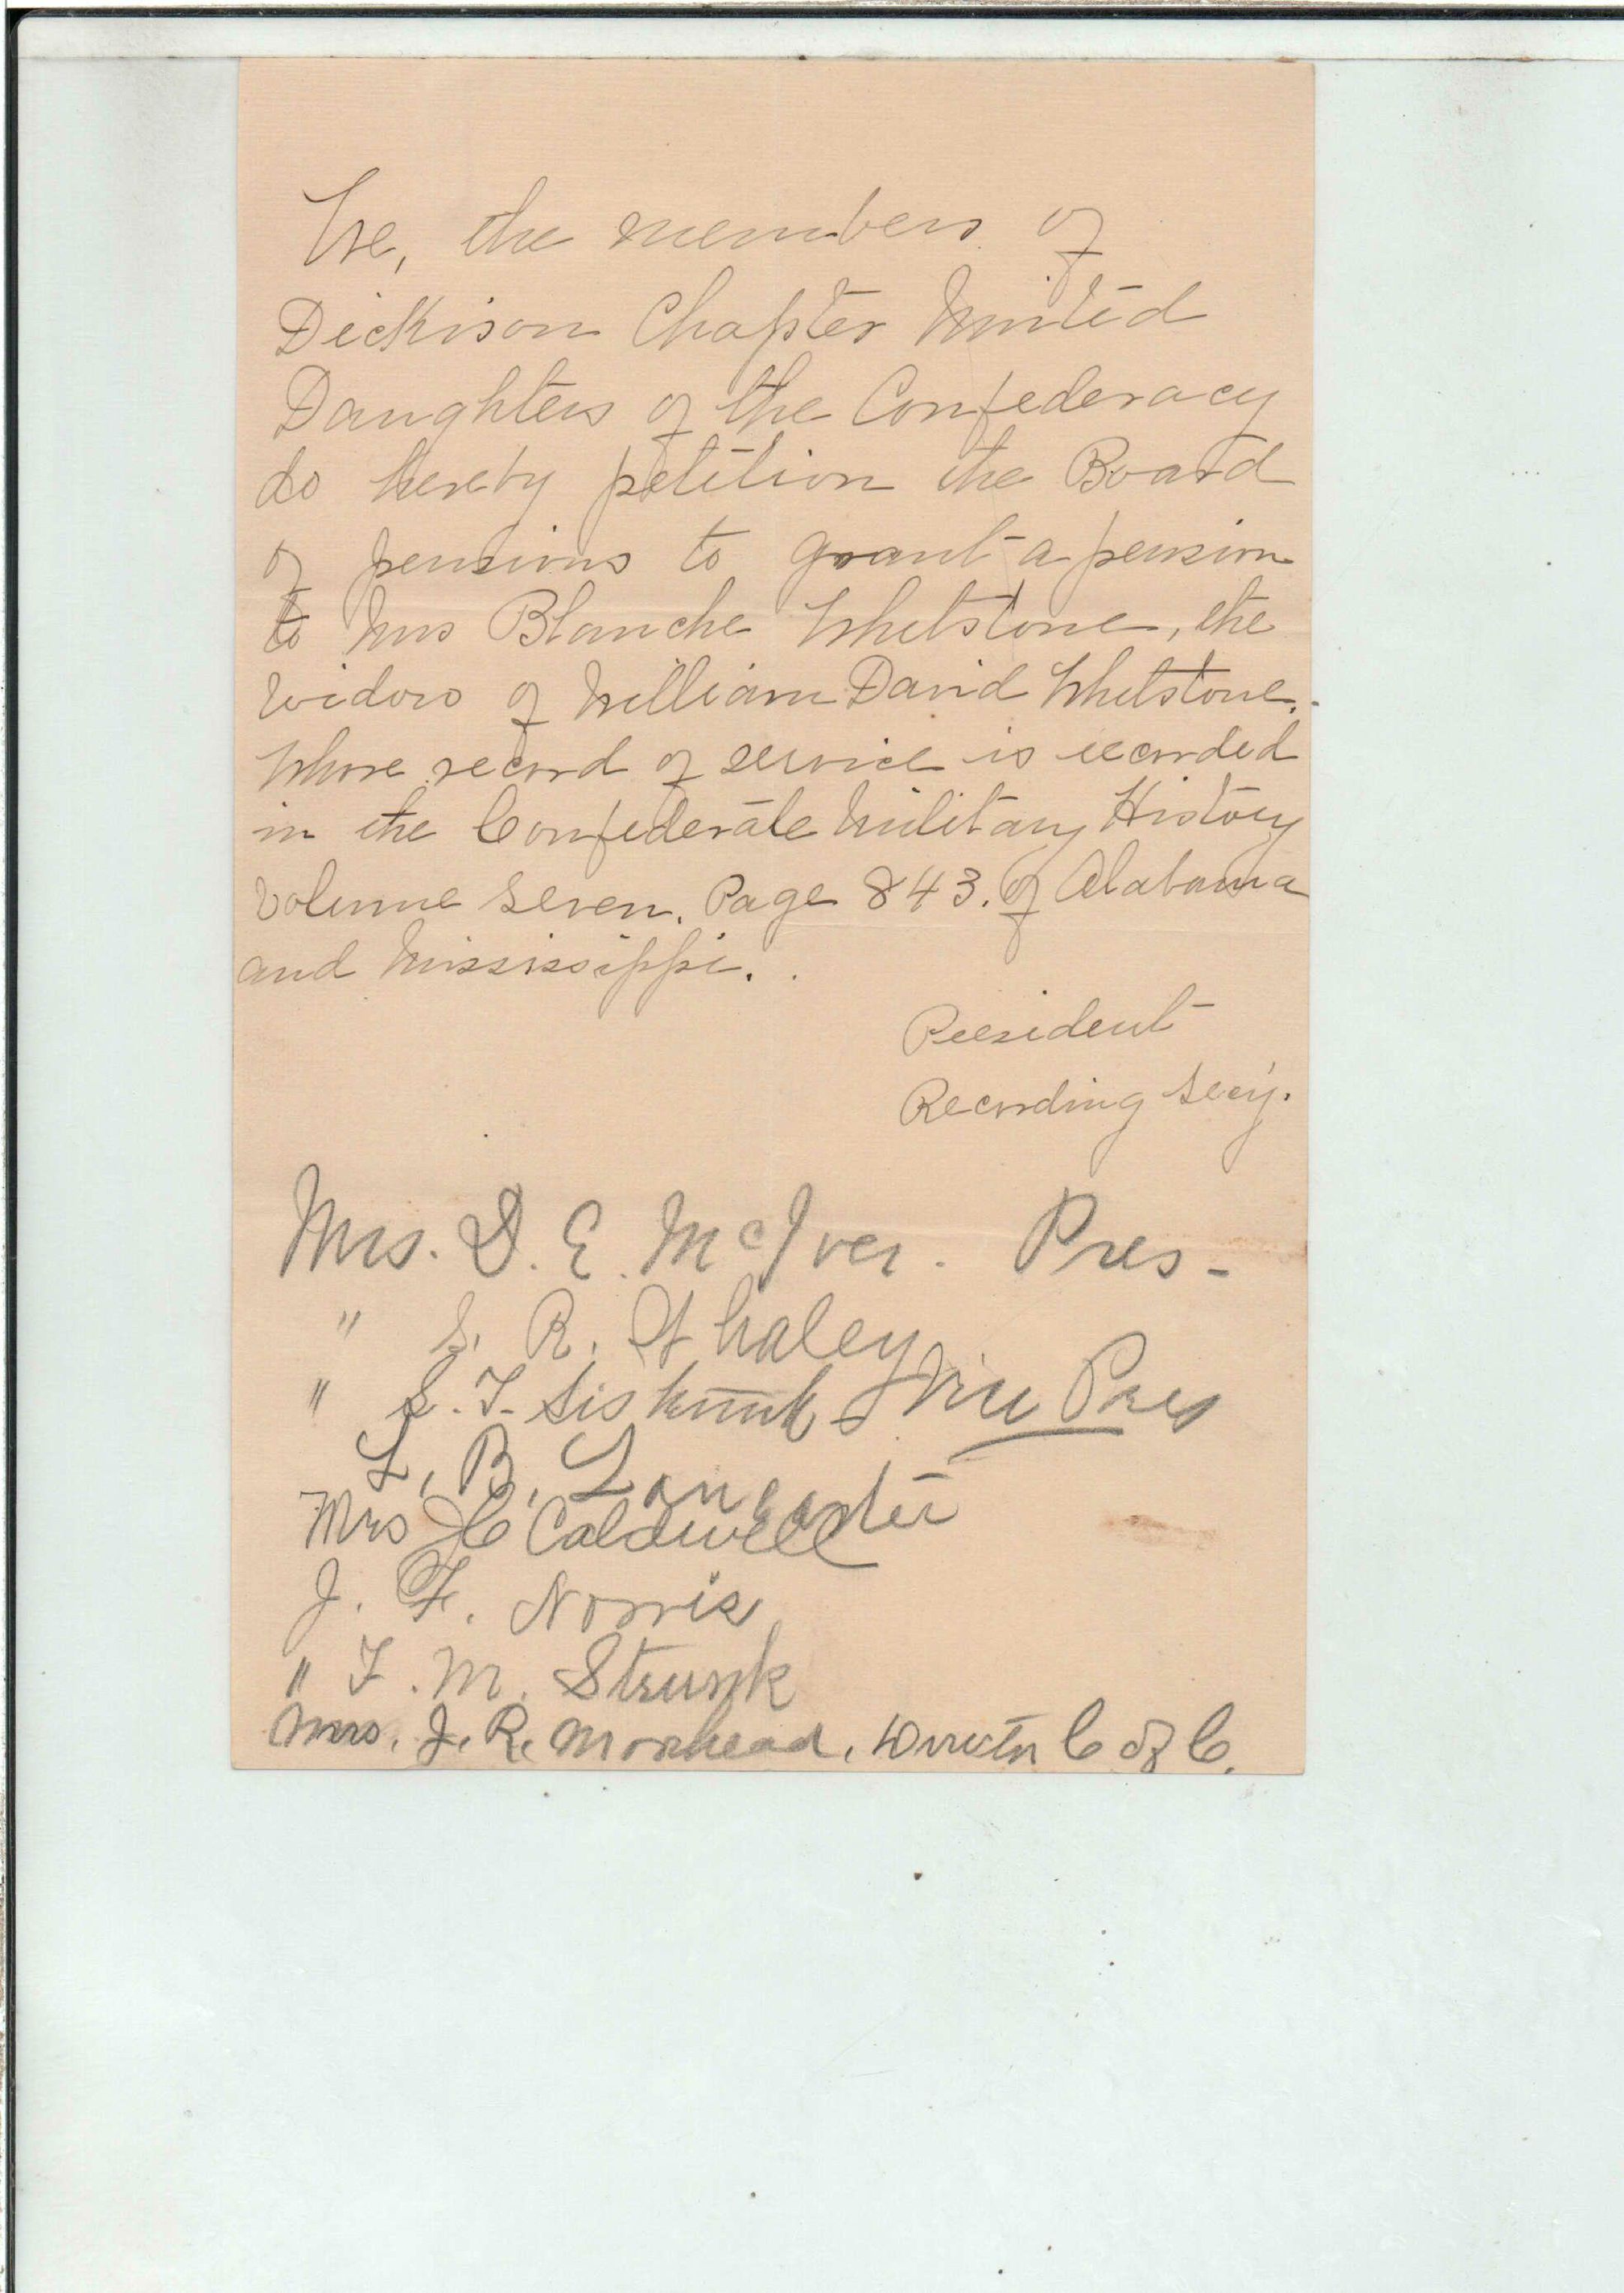 We, the members of
Dickison Chapter United
Daughters of the Confederacy
do hereby petition the Board
of pensions to grant a pension
to Mrs Blanche Whetstone, the
widow of William David Whetstone.
Whose record of service is recorded
in the Confederate Military History
volume seven. Page 843. of Alabama
and Mississippi.
President
Recording Secy.
Mrs. D. E. McIver. Pres-
" S. R. Whaley
" S. T. Sistrunk Vice Pres
L. B. Lancaster
Mrs JC Caldwell
J. F. Norris
" F. M. Strunk
Mrs. J. R. Moorhead, Director C of C.